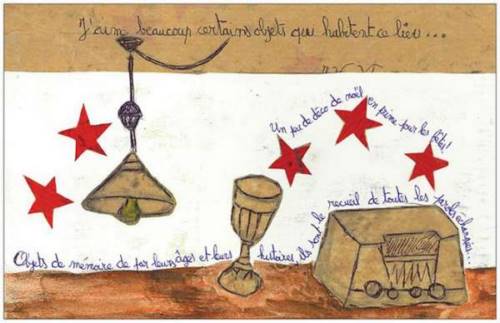 J'aime beaucoup certains objets qui habitent ce lieu...
Un peu de déco de noël en prime pour les fêtes!
Objets de mémoire de par leurs âges et leurs histoires ils sont le recueil de toutes les paroles échangées...